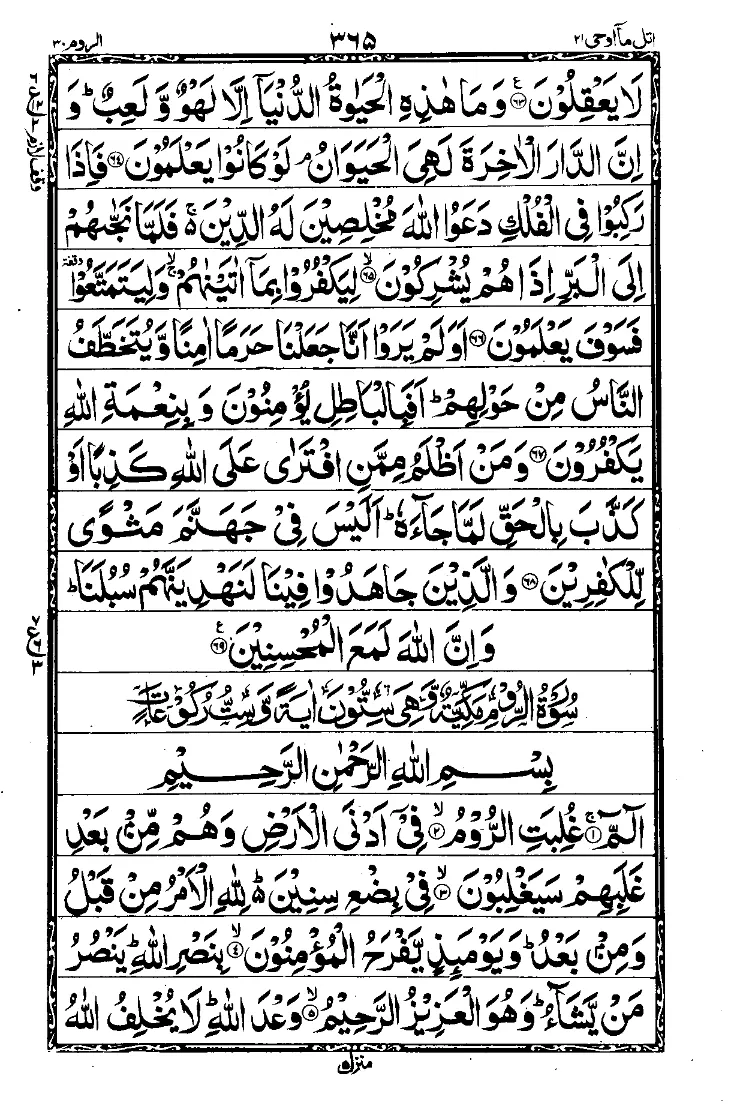 اتل مآ اوحی ٢١ ٣٦٥ الروم ٣٠
لَا يَعْقِلُوْنَ ﴿٦٣﴾ ع وَمَا هٰذِهِ الْحَيٰوةُ الدُّنْيَآ اِلَّا لَهْوٌ وَّ لَعِبٌ ؕ وَ
اِنَّ الدَّارَ الْاٰخِرَةَ لَهِىَ الْحَيَوَانُ ۘ لَوْ كَانُوْا يَعْلَمُوْنَ ﴿٦٤﴾ فَاِذَا
رَكِبُوْا فِى الْفُلْكِ دَعَوُا اللّٰهَ مُخْلِصِيْنَ لَهُ الدِّيْنَ ۚ۬ فَلَمَّا نَجّٰىهُمْ
اِلَى الْبَرِّ اِذَا هُمْ يُشْرِكُوْنَ ﴿٦٥﴾ ۙ لِيَكْفُرُوْا بِمَآ اٰتَيْنٰهُمْ ۚۙ وَلِيَتَمَتَّعُوْا وقفة
فَسَوْفَ يَعْلَمُوْنَ ﴿٦٦﴾ اَوَلَمْ يَرَوْا اَنَّا جَعَلْنَا حَرَمًا اٰمِنًا وَّيُتَخَطَّفُ
النَّاسُ مِنْ حَوْلِهِمْ ؕ اَفَبِالْبَاطِلِ يُؤْمِنُوْنَ وَ بِنِعْمَةِ اللّٰهِ
يَكْفُرُوْنَ ﴿٦٧﴾ وَمَنْ اَظْلَمُ مِمَّنِ افْتَرٰى عَلَى اللّٰهِ كَذِبًا اَوْ
كَذَّبَ بِالْحَقِّ لَمَّا جَآءَهٗ ؕ اَلَيْسَ فِىْ جَهَنَّمَ مَثْوًى
لِّلْكٰفِرِيْنَ ﴿٦٨﴾ وَالَّذِيْنَ جَاهَدُوْا فِيْنَا لَنَهْدِيَنَّهُمْ سُبُلَنَا ؕ
وَاِنَّ اللّٰهَ لَمَعَ الْمُحْسِنِيْنَ ﴿٦٩﴾ ع
سُوْرَةُ الرُّوْمِ مَكِّيَّةٌ وَّهِىَ سِتُّوْنَ اٰيَةً وَّسِتُّ رُكُوْعَاتٍ
بِسْمِ اللّٰهِ الرَّحْمٰنِ الرَّحِيْمِ
الٓمّٓ ﴿١﴾ ۚ غُلِبَتِ الرُّوْمُ ﴿٢﴾ ۙ فِىْٓ اَدْنَى الْاَرْضِ وَهُمْ مِّنْۢ بَعْدِ
غَلَبِهِمْ سَيَغْلِبُوْنَ ﴿٣﴾ ۙ فِىْ بِضْعِ سِنِيْنَ ؕ۬ لِلّٰهِ الْاَمْرُ مِنْ قَبْلُ
وَمِنْۢ بَعْدُ ؕ وَيَوْمَئِذٍ يَّفْرَحُ الْمُؤْمِنُوْنَ ﴿٤﴾ ۙ بِنَصْرِ اللّٰهِ ؕ يَنْصُرُ
مَنْ يَّشَآءُ ؕ وَهُوَ الْعَزِيْزُ الرَّحِيْمُ ﴿٥﴾ ۙ وَعْدَ اللّٰهِ ؕ لَا يُخْلِفُ اللّٰهُ
وقف لازم
منزل ٥